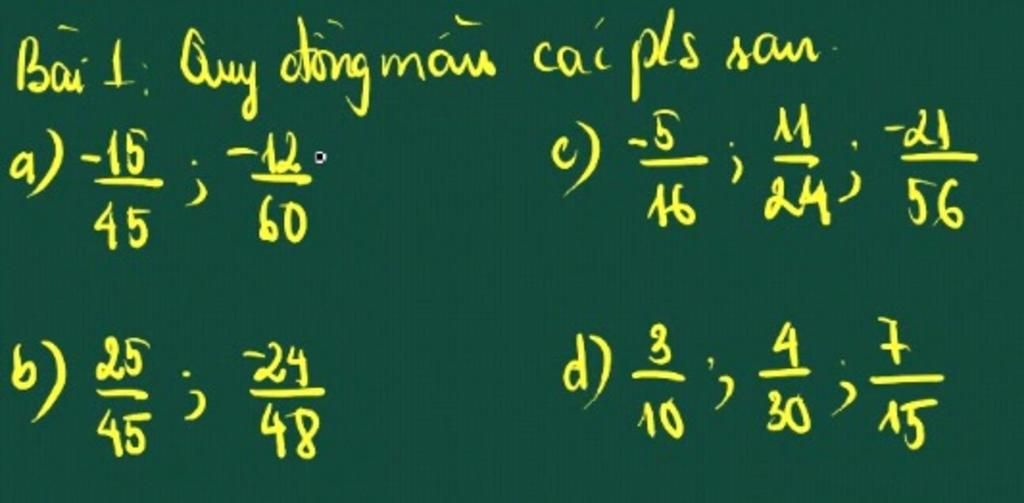 Bài 1: Quy đồng mẫu các pls sau.
a) -15/45 ; -12/60
c) -5/16 ; 11/24 ; -21/56
b) 25/45 ; -24/48
d) 3/10 ; 4/30 ; 7/15